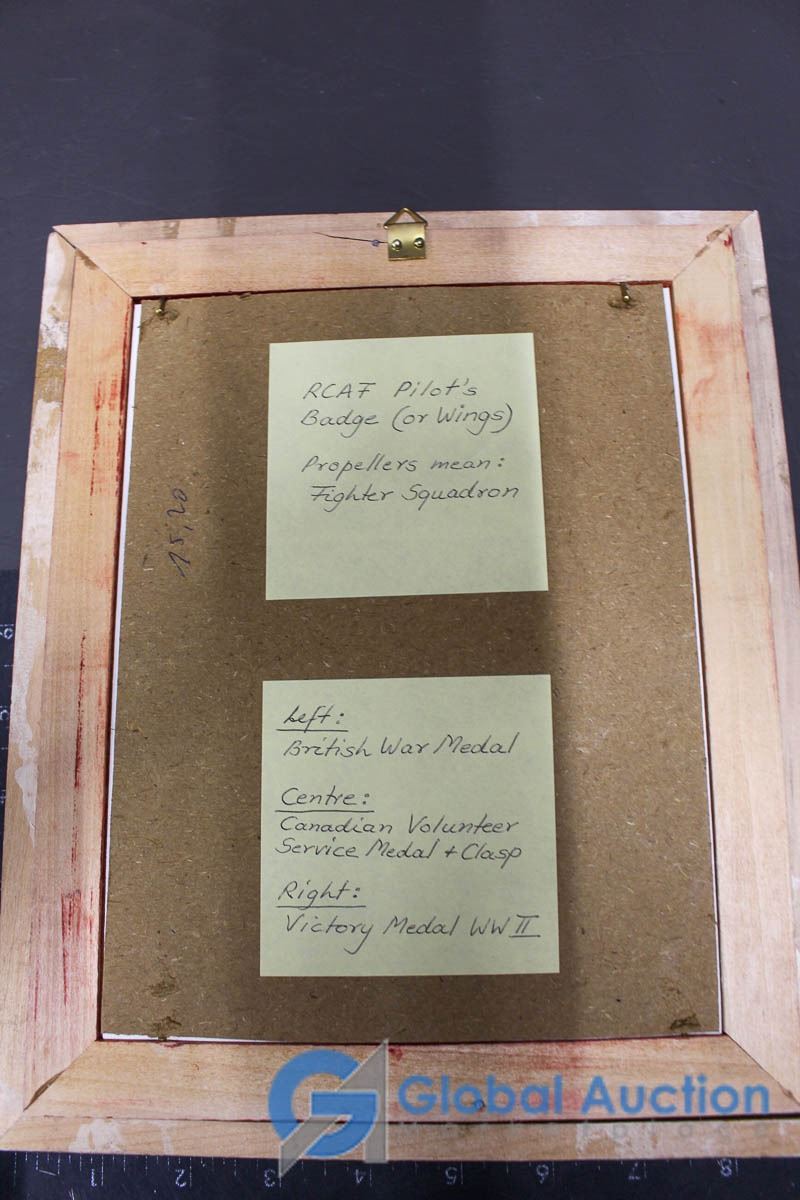 RCAF Pilot's
Badge (or Wings)
Propellers mean:
Fighter Squadron
15,20
Left:
British War Medal
Centre:
Canadian Volunteer
Service Medal + Clasp
Right:
Victory Medal WW II
Global Auction
1 2 3 4 5 6 7 8